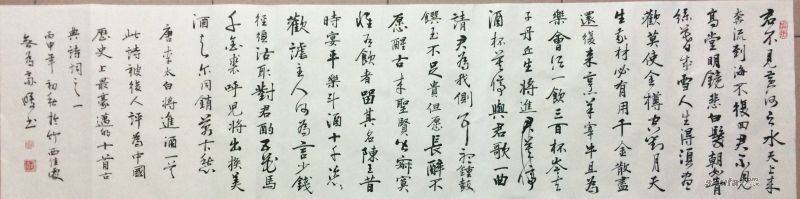 君不見黃河之水天上來
奔流到海不復回君不見
高堂明鏡悲白髮朝如青
絲暮成雪人生得須盡
歡莫使金樽空對月天
生我材必有用千金散盡
還復來烹羊宰牛且為
樂會須一飲三百杯岑夫
子丹丘生將進君莫停
酒杯莫停與君歌一曲
請君為我側耳聽鐘鼓
饌玉不足貴但愿長醉不
愿醒古來聖賢皆寂寞
惟有飲者留其名陳王昔
時宴平樂斗酒十千恣
歡謔主人何為言少錢
徑須沽取對君酌五花馬
千金裘呼兒將出換美
酒與尔同銷萬古愁
唐李太白將進酒一首
此詩被後人評為中國
歷史上最豪邁的十首古
典詩詞之一
丙申年初秋於竹西佳處